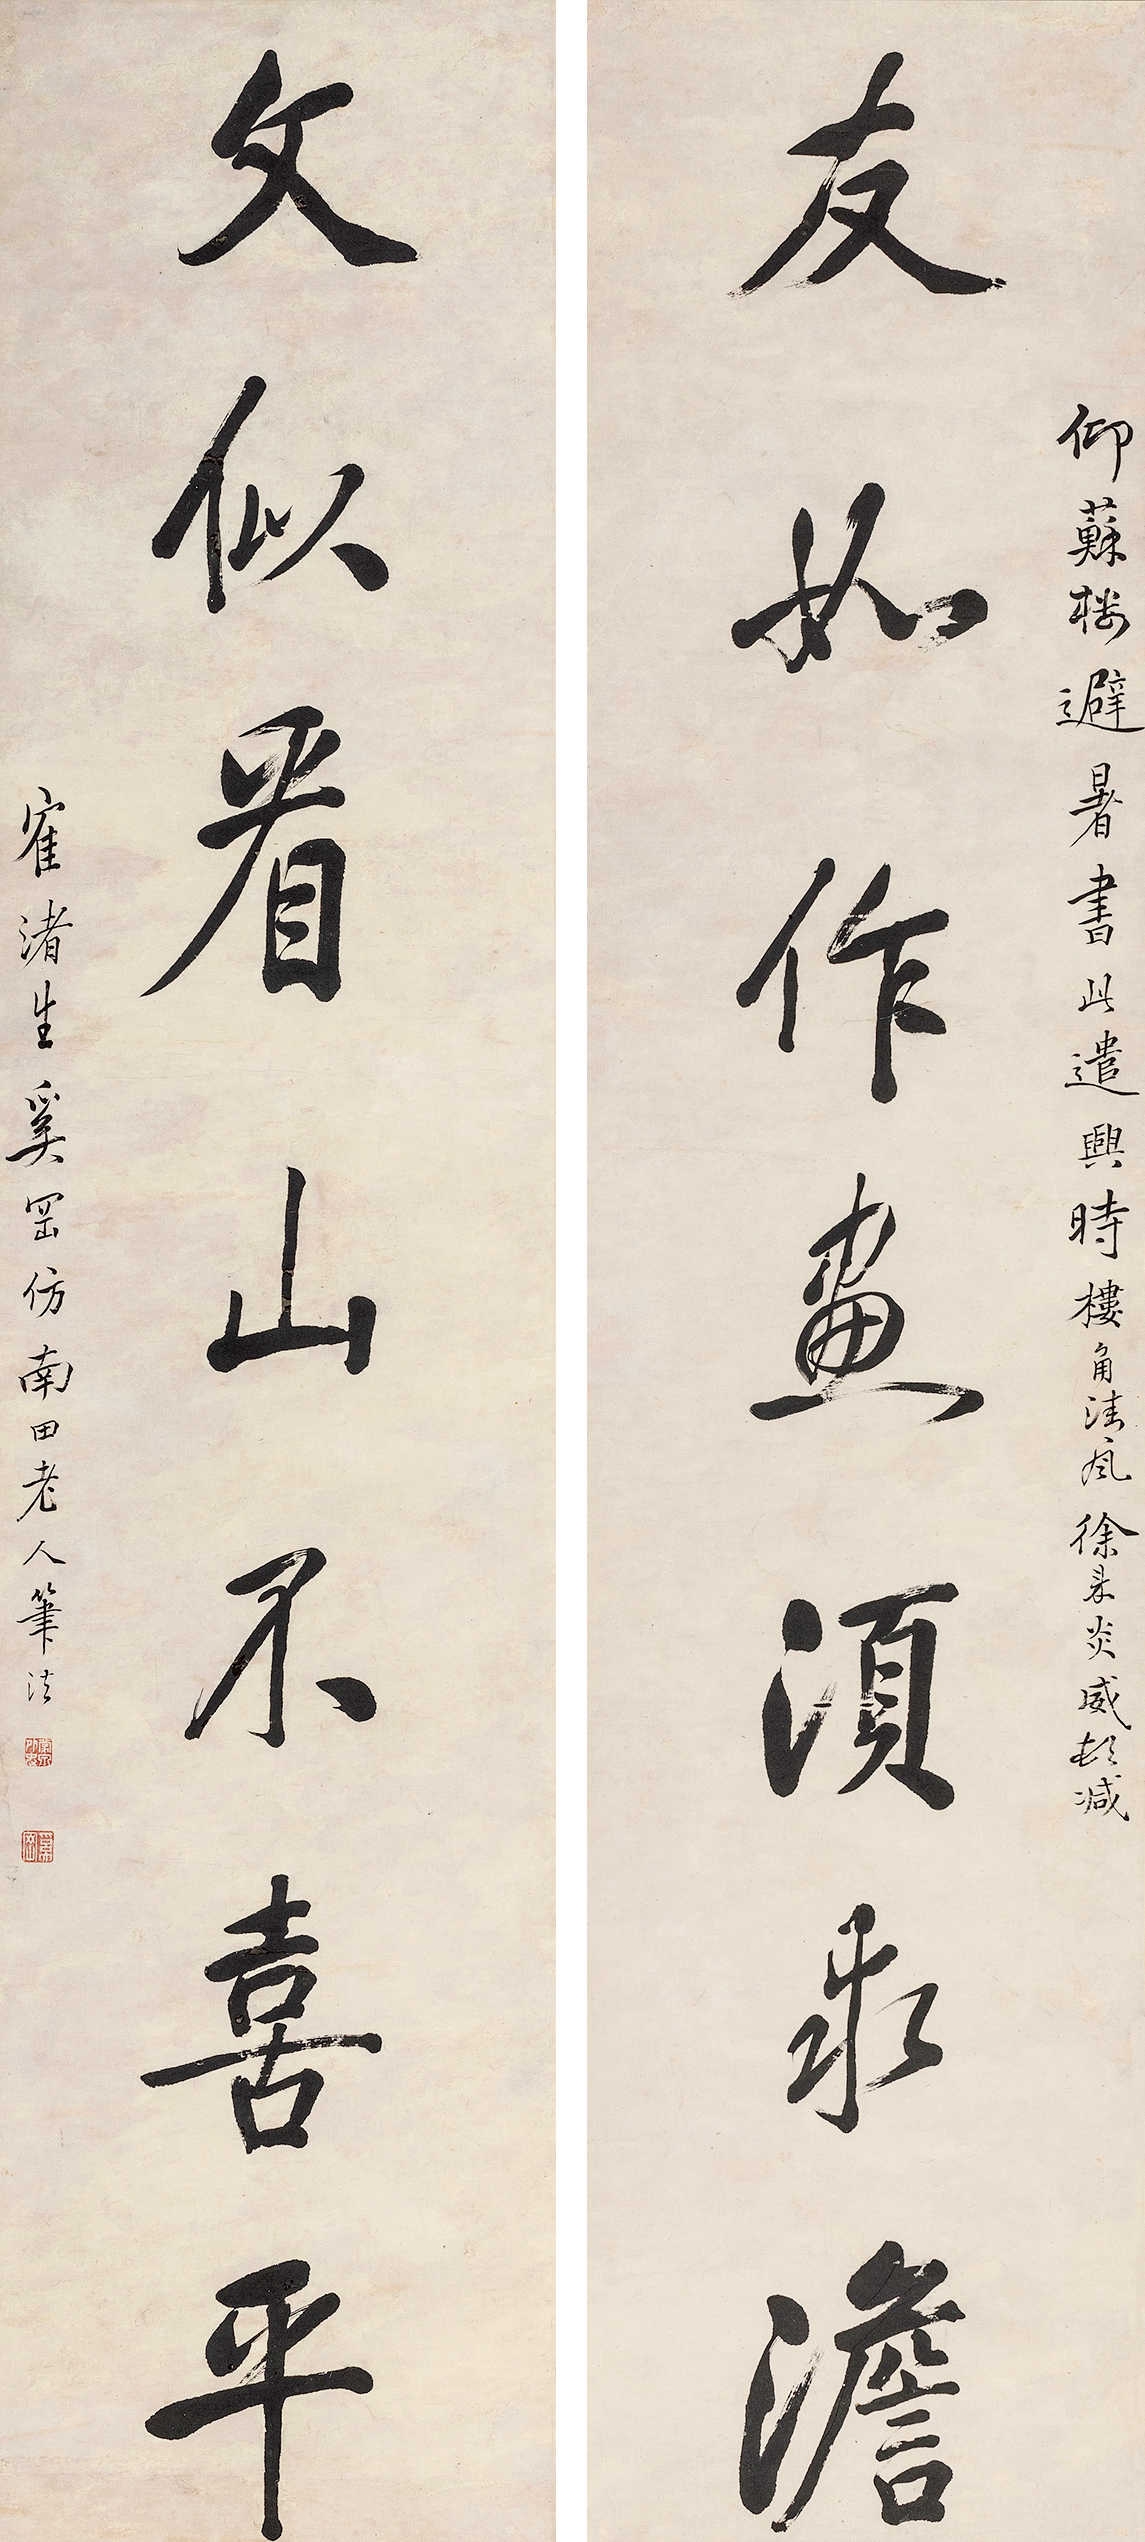 仰蘇楼避暑書此遣興時樓角清風徐来炎威頓減
友如作畫須求澹
文似看山不喜平
寉渚生奚岡仿南田老人筆法
奚岡